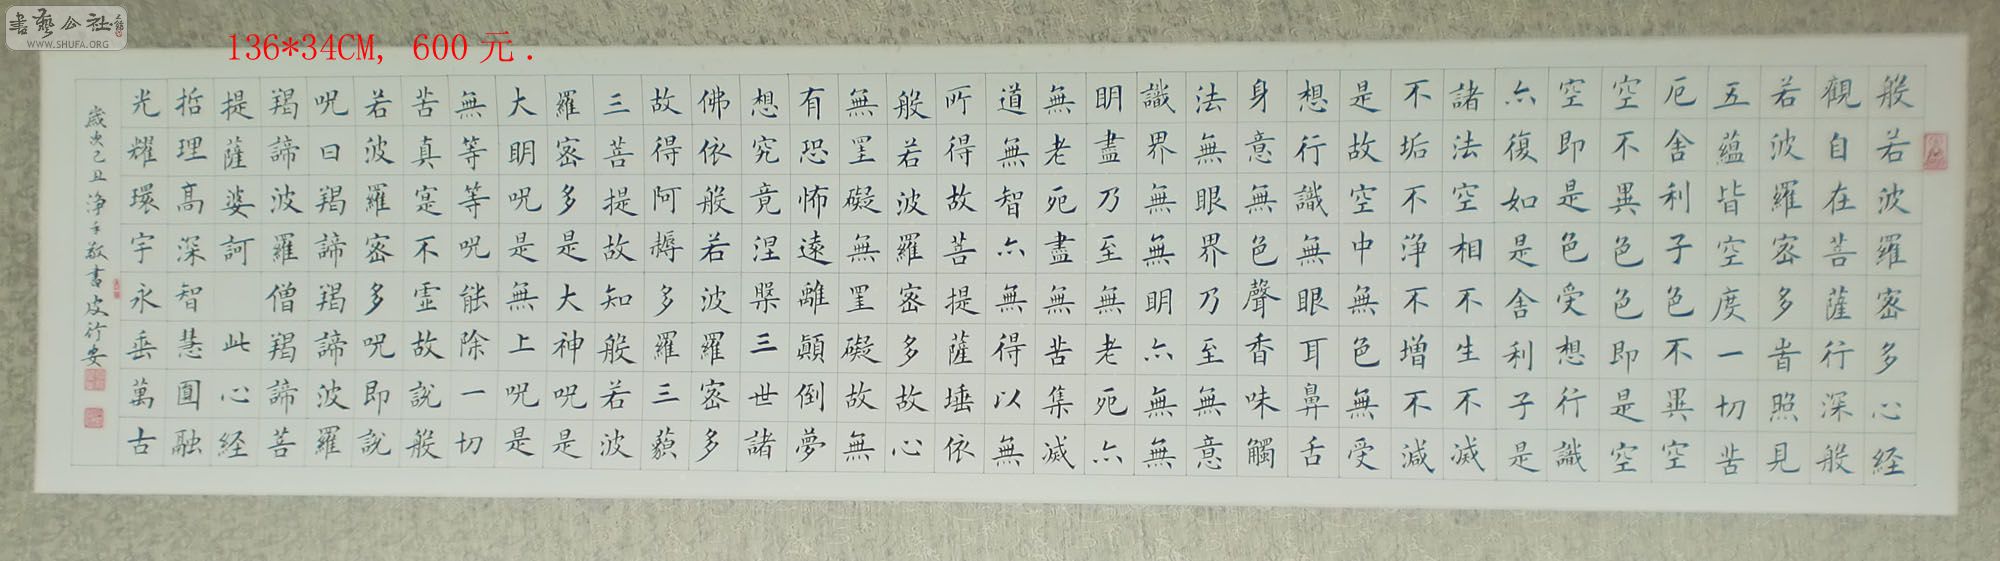 書藝公社
WWW.SHUFA.ORG
136*34CM, 600元.
般若波羅密多心経
觀自在菩薩行深般
若波羅密多旹照見
五蘊皆空度一切苦
厄舍利子色不異空
空不異色色即是空
空即是色受想行識
亦復如是舍利子是
諸法空相不生不滅
不垢不浄不增不減
是故空中無色無受
想行識無眼耳鼻舌
身意無色聲香味觸
法無眼界乃至無意
識界無無明亦無無
明盡乃至無老死亦
無老死盡無苦集滅
道無智亦無得以無
所得故菩提薩埵依
般若波羅密多故心
無罣礙無罣礙故無
有恐怖遠離顛倒夢
想究竟涅槃三世諸
佛依般若波羅密多
故得阿耨多羅三藐
三菩提故知般若波
羅密多是大神呪是
大明呪是無上呪是
無等等呪能除一切
苦真寔不虛故説般
若波羅密多呪即説
呪曰羯諦羯諦波羅
羯諦波羅僧羯諦菩
提薩婆訶 此心経
哲理高深智慧圓融
光耀環宇永垂萬古
歲次己丑浄手敬書皮行安